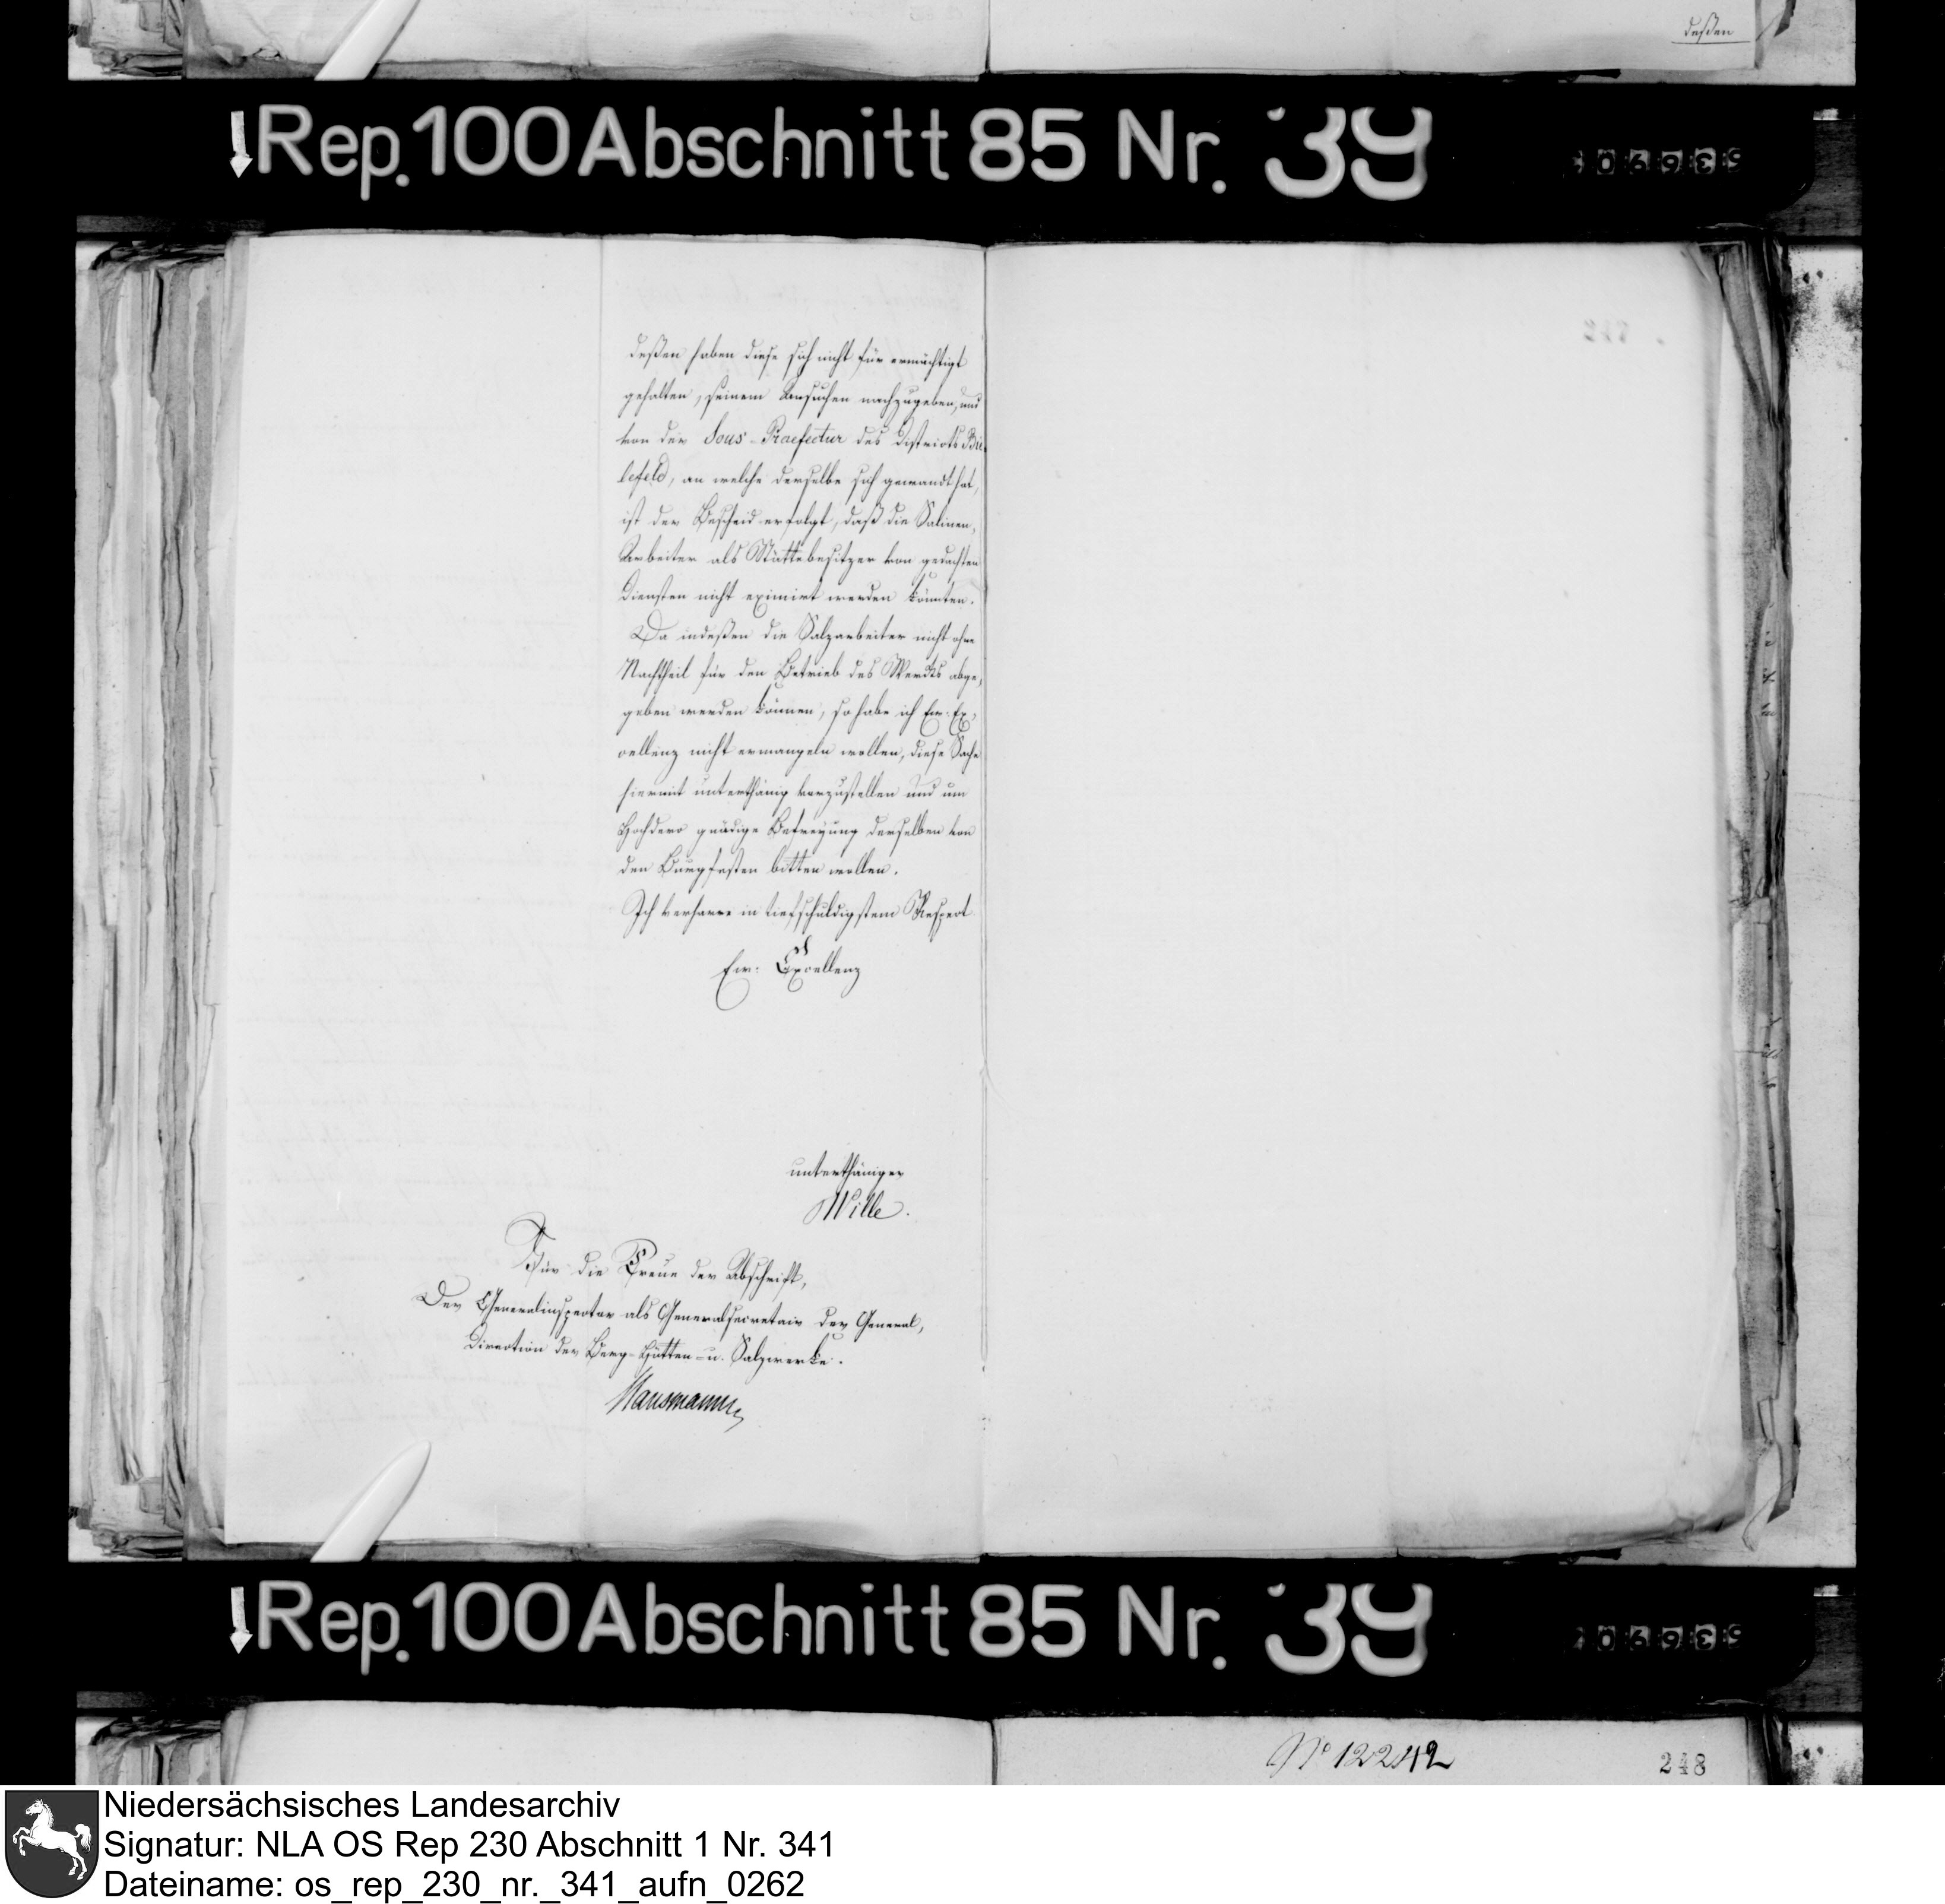 deßen
Rep. 100 Abschnitt 85 Nr. 39
deßen haben diese sich nicht für ermächtigt
gehalten, seinem Ansuchen nachzugeben, und
von der Sous-Praefectur des Districts Bie-
lefeld, an welche derselbe sich gewandt hat,
ist der Bescheid erfolgt, daß die Salinen,
Arbeiter als Stättebesitzer von gedachten
Diensten nicht eximirt werden könnten.
Da indeßen die Salzarbeiter nicht ohne
Nachtheil für den Betrieb des Werks abge,
geben werden können, so habe ich Ew. Ex,
cellenz nicht ermangeln wollen, diese Sache
hiermit unterthänig vorzustellen und um
Hochdero gnädige Befreyung derselben von
den Burgfesten bitten wollen.
Ich verharre in tiefschuldigstem Respect
Ew: Excellenz
unterthäniger
Wille.
Für die Treue der Abschrift,
Der Generalinspector als Generalsecretair der General,
Direction der Berg-Hütten-u. Salzwerke.
Hausmann
Rep. 100 Abschnitt 85 Nr. 39
No 12242
248
Niedersächsisches Landesarchiv
Signatur: NLA OS Rep 230 Abschnitt 1 Nr. 341
Dateiname: os_rep_230_nr._341_aufn_0262